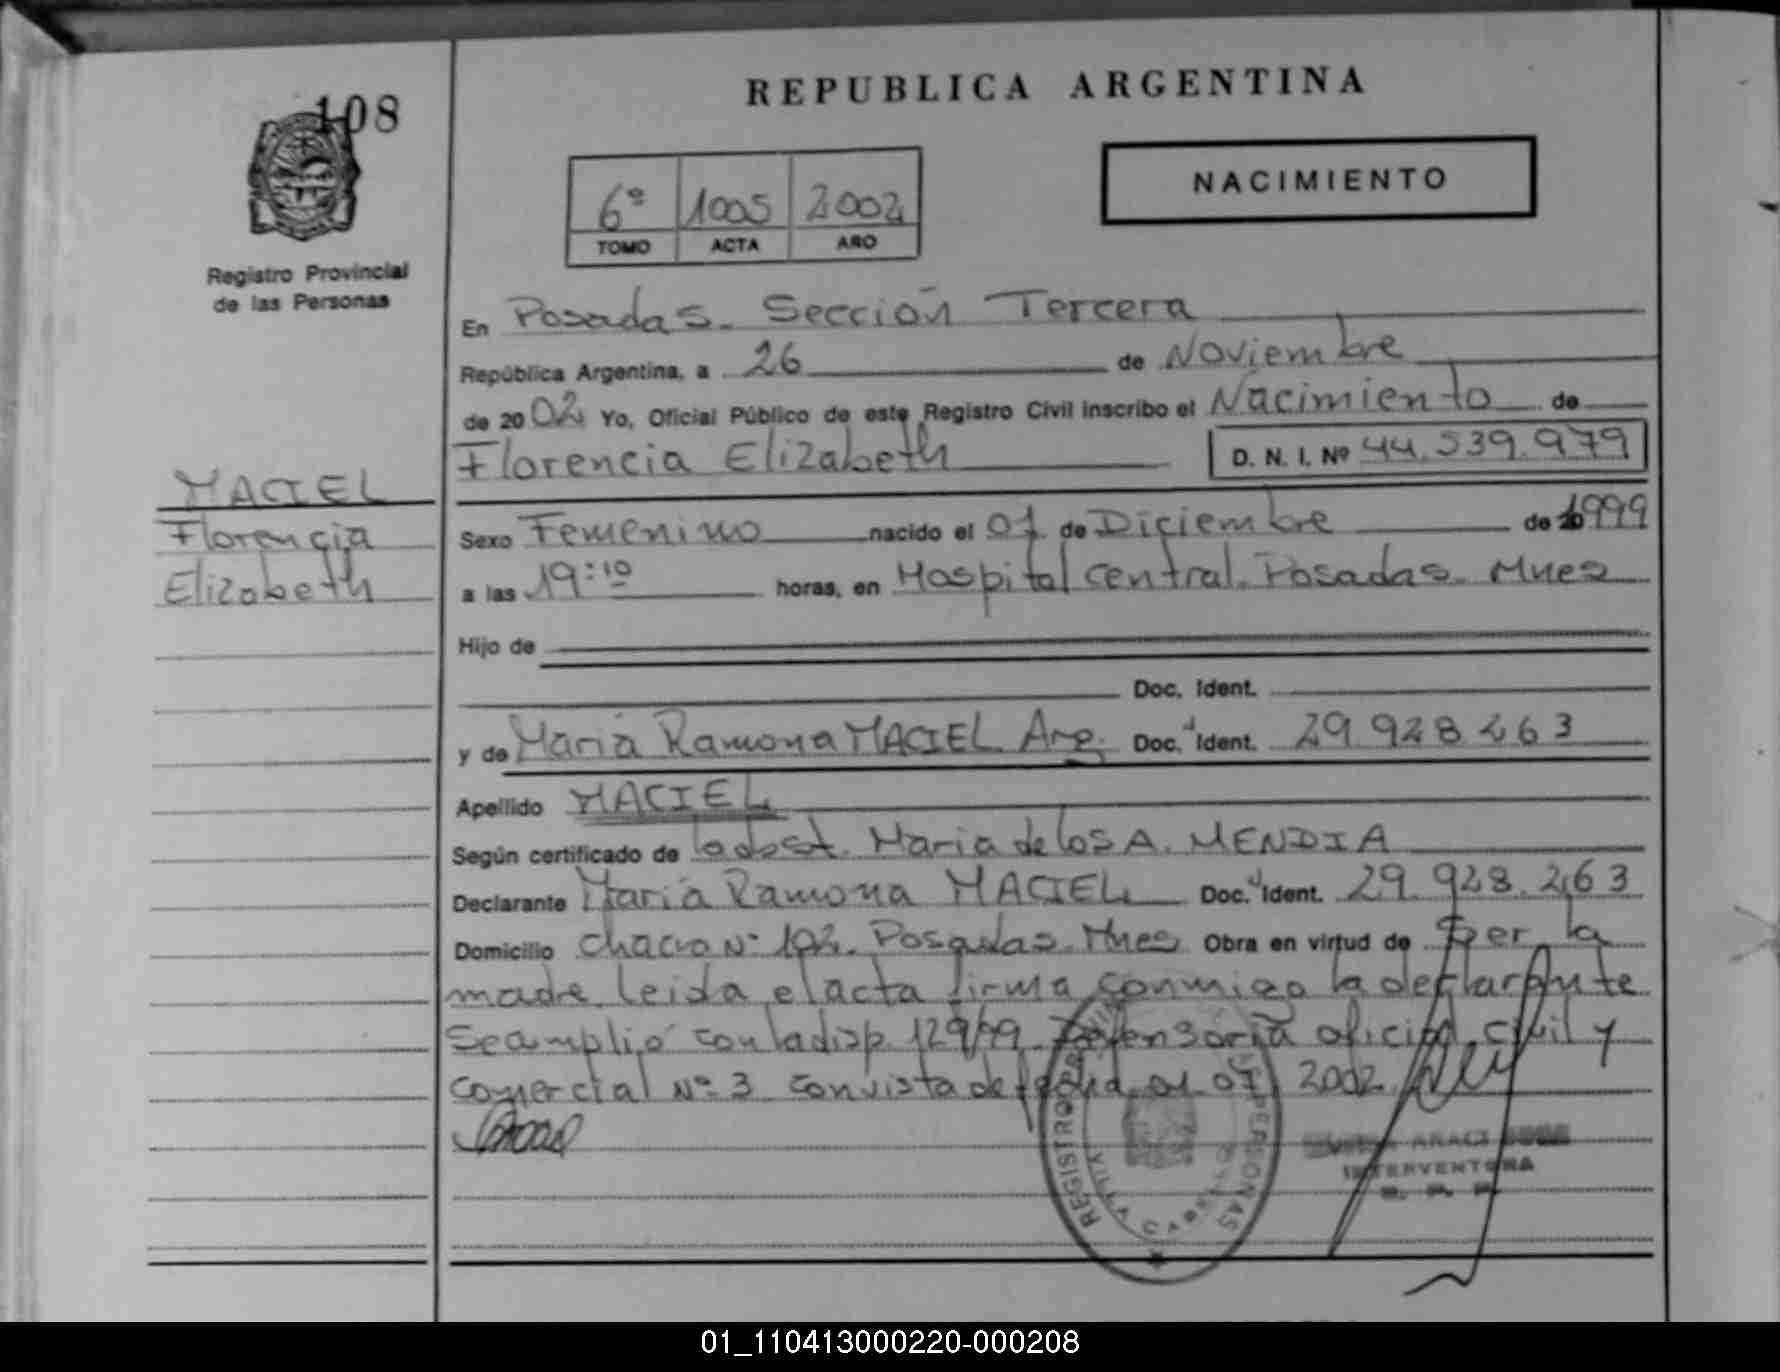 108
REPUBLICA ARGENTINA
NACIMIENTO
6º 1005 2002
TOMO ACTA AÑO
Registro Provincial
de las Personas
En Posadas. Sección Tercera
República Argentina, a 26 de Noviembre
de 2002 Yo, Oficial Público de este Registro Civil inscribo el Nacimiento de
Florencia Elizabeth D. N. I. Nº 44.539.979
MACIEL
Florencia
Elizabeth
Sexo Femenino nacido el 07 de Diciembre de 1999
a las 19:10 horas, en Hospital Central. Posadas. Mnes
Hijo de
Doc. Ident.
y de María Ramona MACIEL Arg. Doc. Ident. 29.928.263
Apellido MACIEL
Según certificado de la obst. Maria de los A. MENDIA
Declarante María Ramona MACIEL Doc. Ident. 29.928.263
Domicilio Chacra Nº 192. Posadas. Mnes Obra en virtud de Ser la
madre leida el acta firma conmigo la declarante
Se amplió con la disp. 129/99 Defensoría oficial civil y
comercial Nº 3 con vista de fecha 01 07 2002
REGISTRO PERSONAS
ARACI
INTERVENTORA
01_110413000220-000208